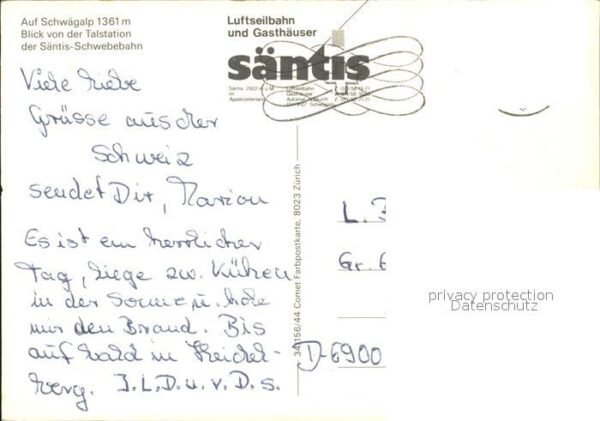 Auf Schwägalp 1361 m
Blick von der Talstation
der Säntis-Schwebebahn
Luftseilbahn
und Gasthäuser
säntis
Säntis 2502 m ü. M.
im
Appenzellerland
Luftseilbahn
Gasthäuser
Viele liebe
Grüsse aus der
Schweiz
sendet Dir, Marion
Es ist ein herrlicher
Tag, liege zw. Kühen
in der Sonne u. hole
mir den Brand. Bis
auf bald in Heidel-
berg. I. L. D. u. v. D. s.
34 156/44 Comet Farbpostkarte, 8023 Zürich
L.
Gr.
D-6900
privacy protection
Datenschutz